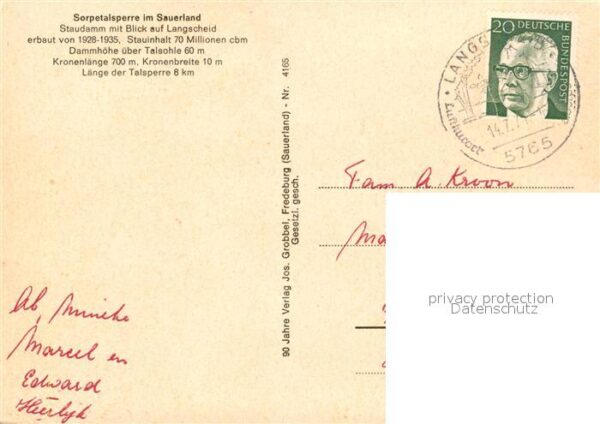 Sorpetalsperre im Sauerland
Staudamm mit Blick auf Langscheid
erbaut von 1928-1935, Stauinhalt 70 Millionen cbm
Dammhöhe über Talsohle 60 m
Kronenlänge 700 m, Kronenbreite 10 m
Länge der Talsperre 8 km
90 Jahre Verlag Jos. Grobbel, Fredeburg (Sauerland) - Nr. 4165
Gesetzl. gesch.
20 DEUTSCHE
BUNDESPOST
LANGS
Luftkurort
14.7.7
5765
Fam A. Kroon
Ma
privacy protection
Datenschutz
Ab, Mineke
Marcel en
Edward
Heerlijk